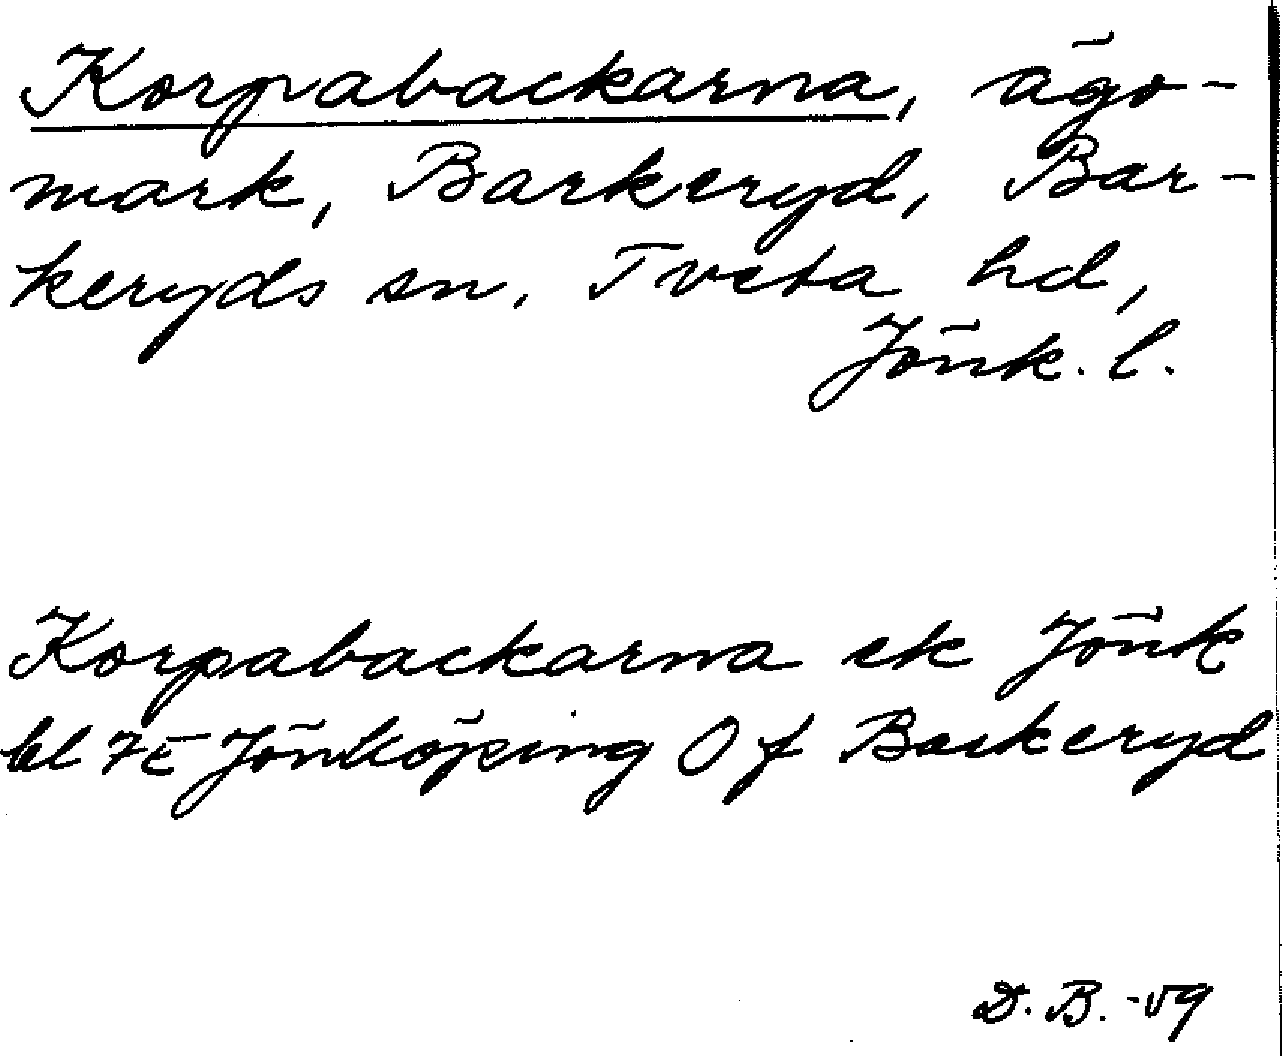 Korpabackarna, ägo-
mark, Barkeryd, Bar-
keryds sn, Tveta hd,
Jönk. l.
Korpabackarna ek Jönk
bl 7E Jönköping Of Barkeryd
D. B. -59